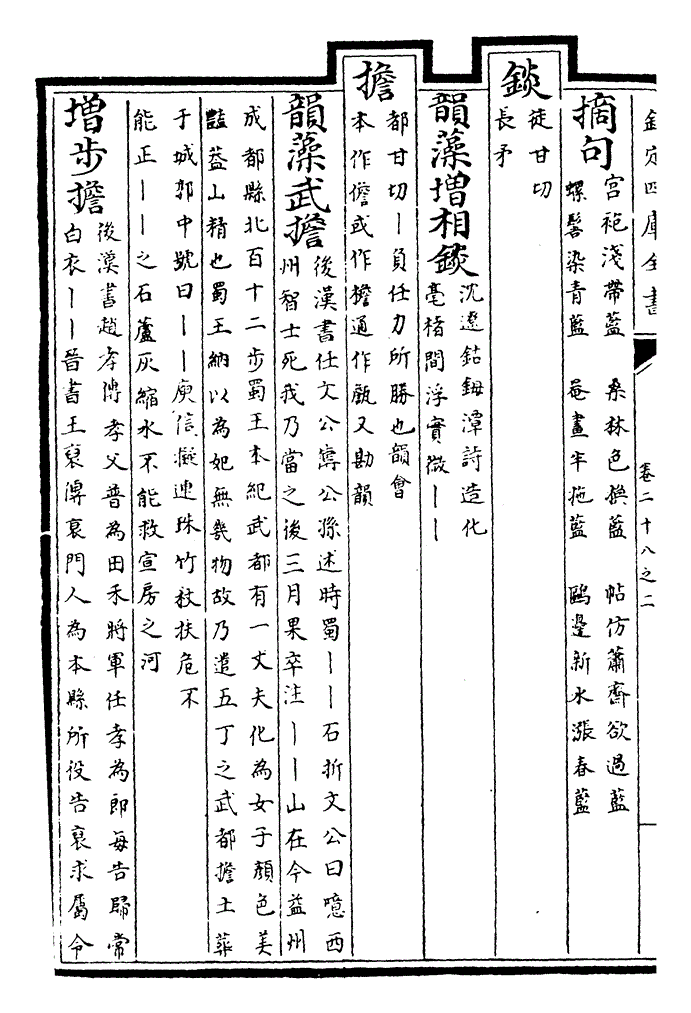 欽定四庫全書
卷二十八之二
摘句
宫袍淺帶藍 桑林色換藍 帖仿蕭齋欲過藍
螺髻染青藍 菴畫半拖藍 鷗邊新水漲春藍
錟
徒甘切
長矛
韻藻增相錟
沈遼鈷鉧潭詩造化
亳楮間浮實微丨丨
擔
都甘切丨負任力所勝也韻會
本作儋或作檐通作甔又勘韻
韻藻武擔
後漢書任文公傳公孫述時蜀丨丨石折文公曰噫西
州智士死我乃當之後三月果卒注丨丨山在今益州
成都縣北百十二步蜀王本紀武都有一丈夫化為女子顔色美
豔葢山精也蜀王納以為妃無幾物故乃遣五丁之武都擔土葬
于城郭中號曰丨丨庾信擬連珠竹杖扶危不
能正丨丨之石蘆灰縮水不能救宣房之河
增步擔
後漢書趙孝傳孝父普為田禾將軍任孝為郎每告歸常
白衣丨丨晉書王裒傳裒門人為本縣所役告裒求屬令